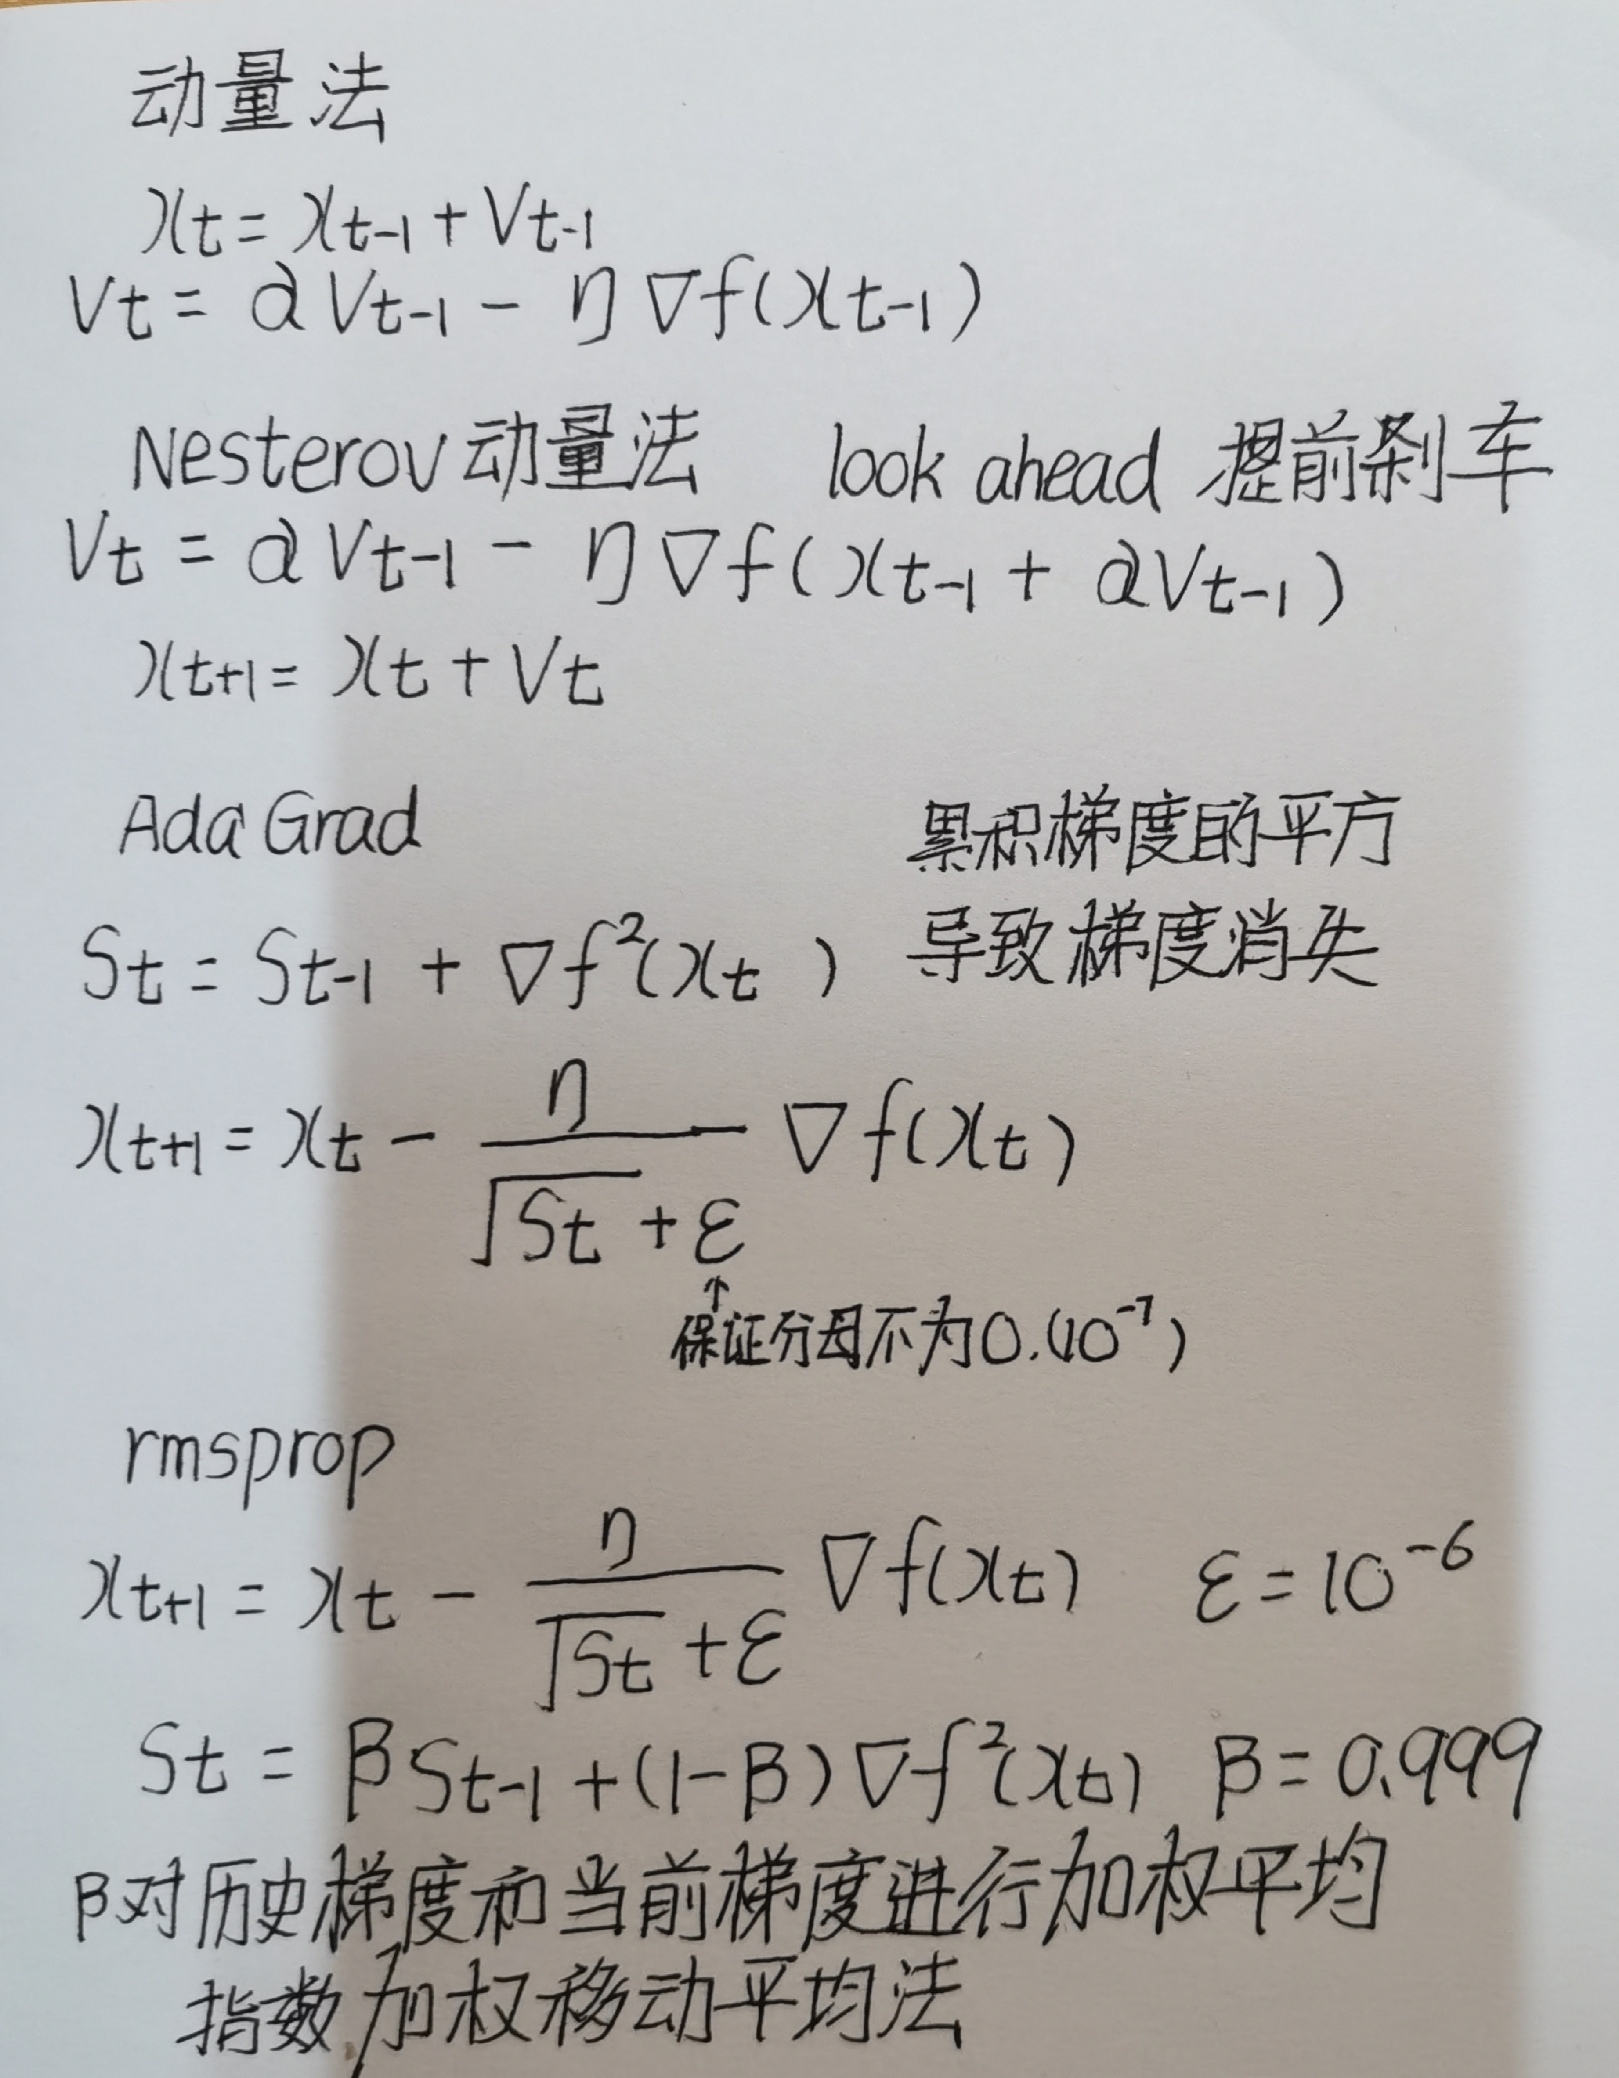 动量法
xt = xt-1 + Vt-1
Vt = αVt-1 - η∇f(xt-1)
Nesterov动量法 look ahead 提前刹车
Vt = αVt-1 - η∇f(xt-1 + αVt-1)
xt+1 = xt + Vt
AdaGrad 累积梯度的平方
St = St-1 + ∇f²(xt) 导致梯度消失
xt+1 = xt - η/(√St + ε) ∇f(xt)
↑
保证分母不为0.(10⁻⁷)
rmsprop
xt+1 = xt - η/(√St + ε) ∇f(xt) ε = 10⁻⁶
St = βSt-1 + (1-β)∇f²(xt) β = 0.999
β对历史梯度和当前梯度进行加权平均
指数加权移动平均法